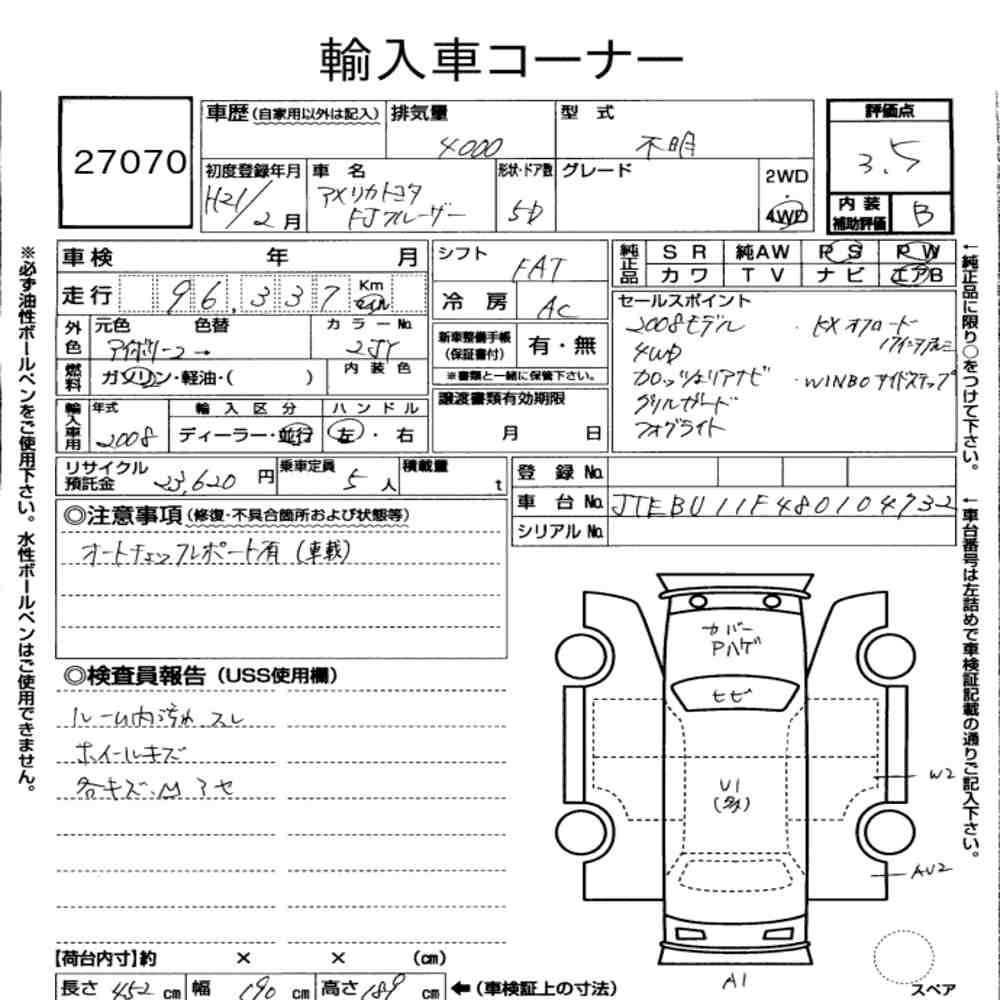 輸入車コーナー
27070
車歴(自家用以外は記入) 排気量 4000 型式 不明 評価点 3.5
初度登録年月 H21/2月 車名 アメリカトヨタ FJクルーザー 形状・ドア数 5D グレード 2WD 4WD
内装補助評価 B
車検 年 月
走行 96,337 Km マイル
シフト FAT
冷房 AC
純正品 SR 純AW PS PW
カワ TV ナビ エアB
外色 元色 色替 カラーNo.
アイボリー 2JY
燃料 ガソリン・軽油・( ) 内装色
新車整備手帳(保証書付) 有・無
※書類と一緒に保管下さい。
セールスポイント
2008モデル
4WD
カロッツェリアナビ ・WINBOサイドステップ
グリルガード
フォグライト
輸入車用 年式 輸入区分 ハンドル
2008 ディーラー・並行 左・右
譲渡書類有効期限
月 日
リサイクル預託金 23,620円 乗車定員 5人 積載量 t
登録No.
車台No. JTEBU11F480104932
シリアルNo.
◎注意事項(修復・不具合箇所および状態等)
オートチェックレポート有(車載)
◎検査員報告(USS使用欄)
ルーム内汚れ、スレ
ホイールキズ
各キズ、
カバー
Pハゲ
ヒビ
U1
(多)
W2
AU2
A1
スペア
【荷台内寸】約 × × (cm)
長さ 452 cm 幅 190 cm 高さ 189 cm ←(車検証上の寸法)
※必ず油性ボールペンをご使用下さい。水性ボールペンはご使用できません。
←純正品に限り○をつけて下さい。
←車台番号は左詰めで車検証記載の通りご記入下さい。